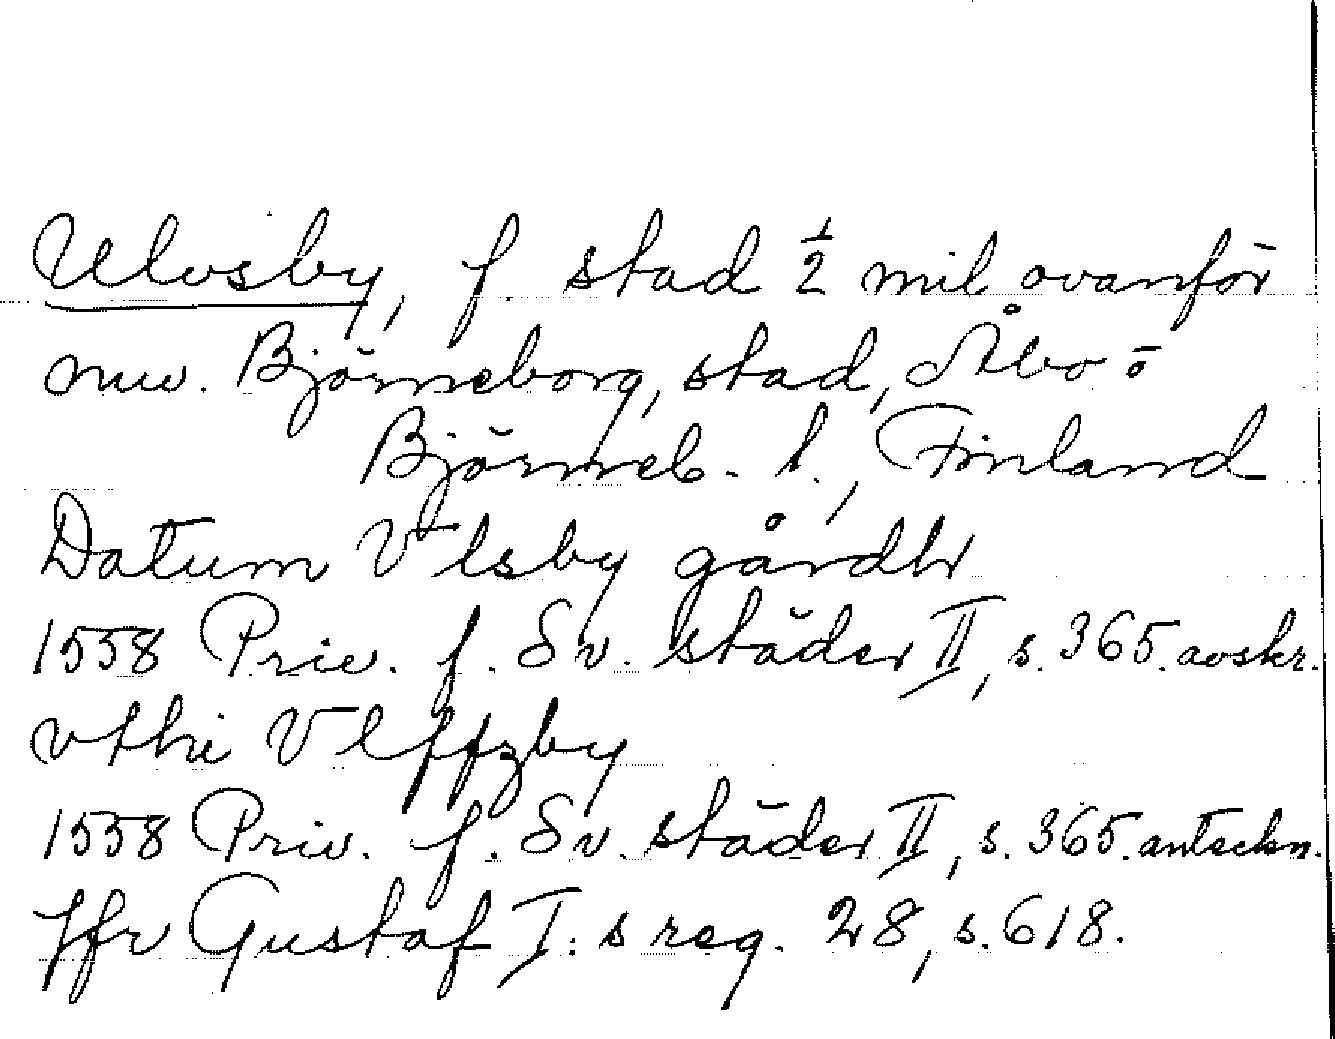 Ulvsby, f. stad ½ mil ovanför
nuv. Björneborg, stad, Åbo o
Björneb. l., Finland
Datum Vlsby gårdh
1558 Priv. f. Sv. städer II, s. 365. avskr.
vthi Vlffzby
1558 Priv. f. Sv. städer II, s. 365. anteckn.
Jfr Gustaf I:s reg. 28, s. 618.